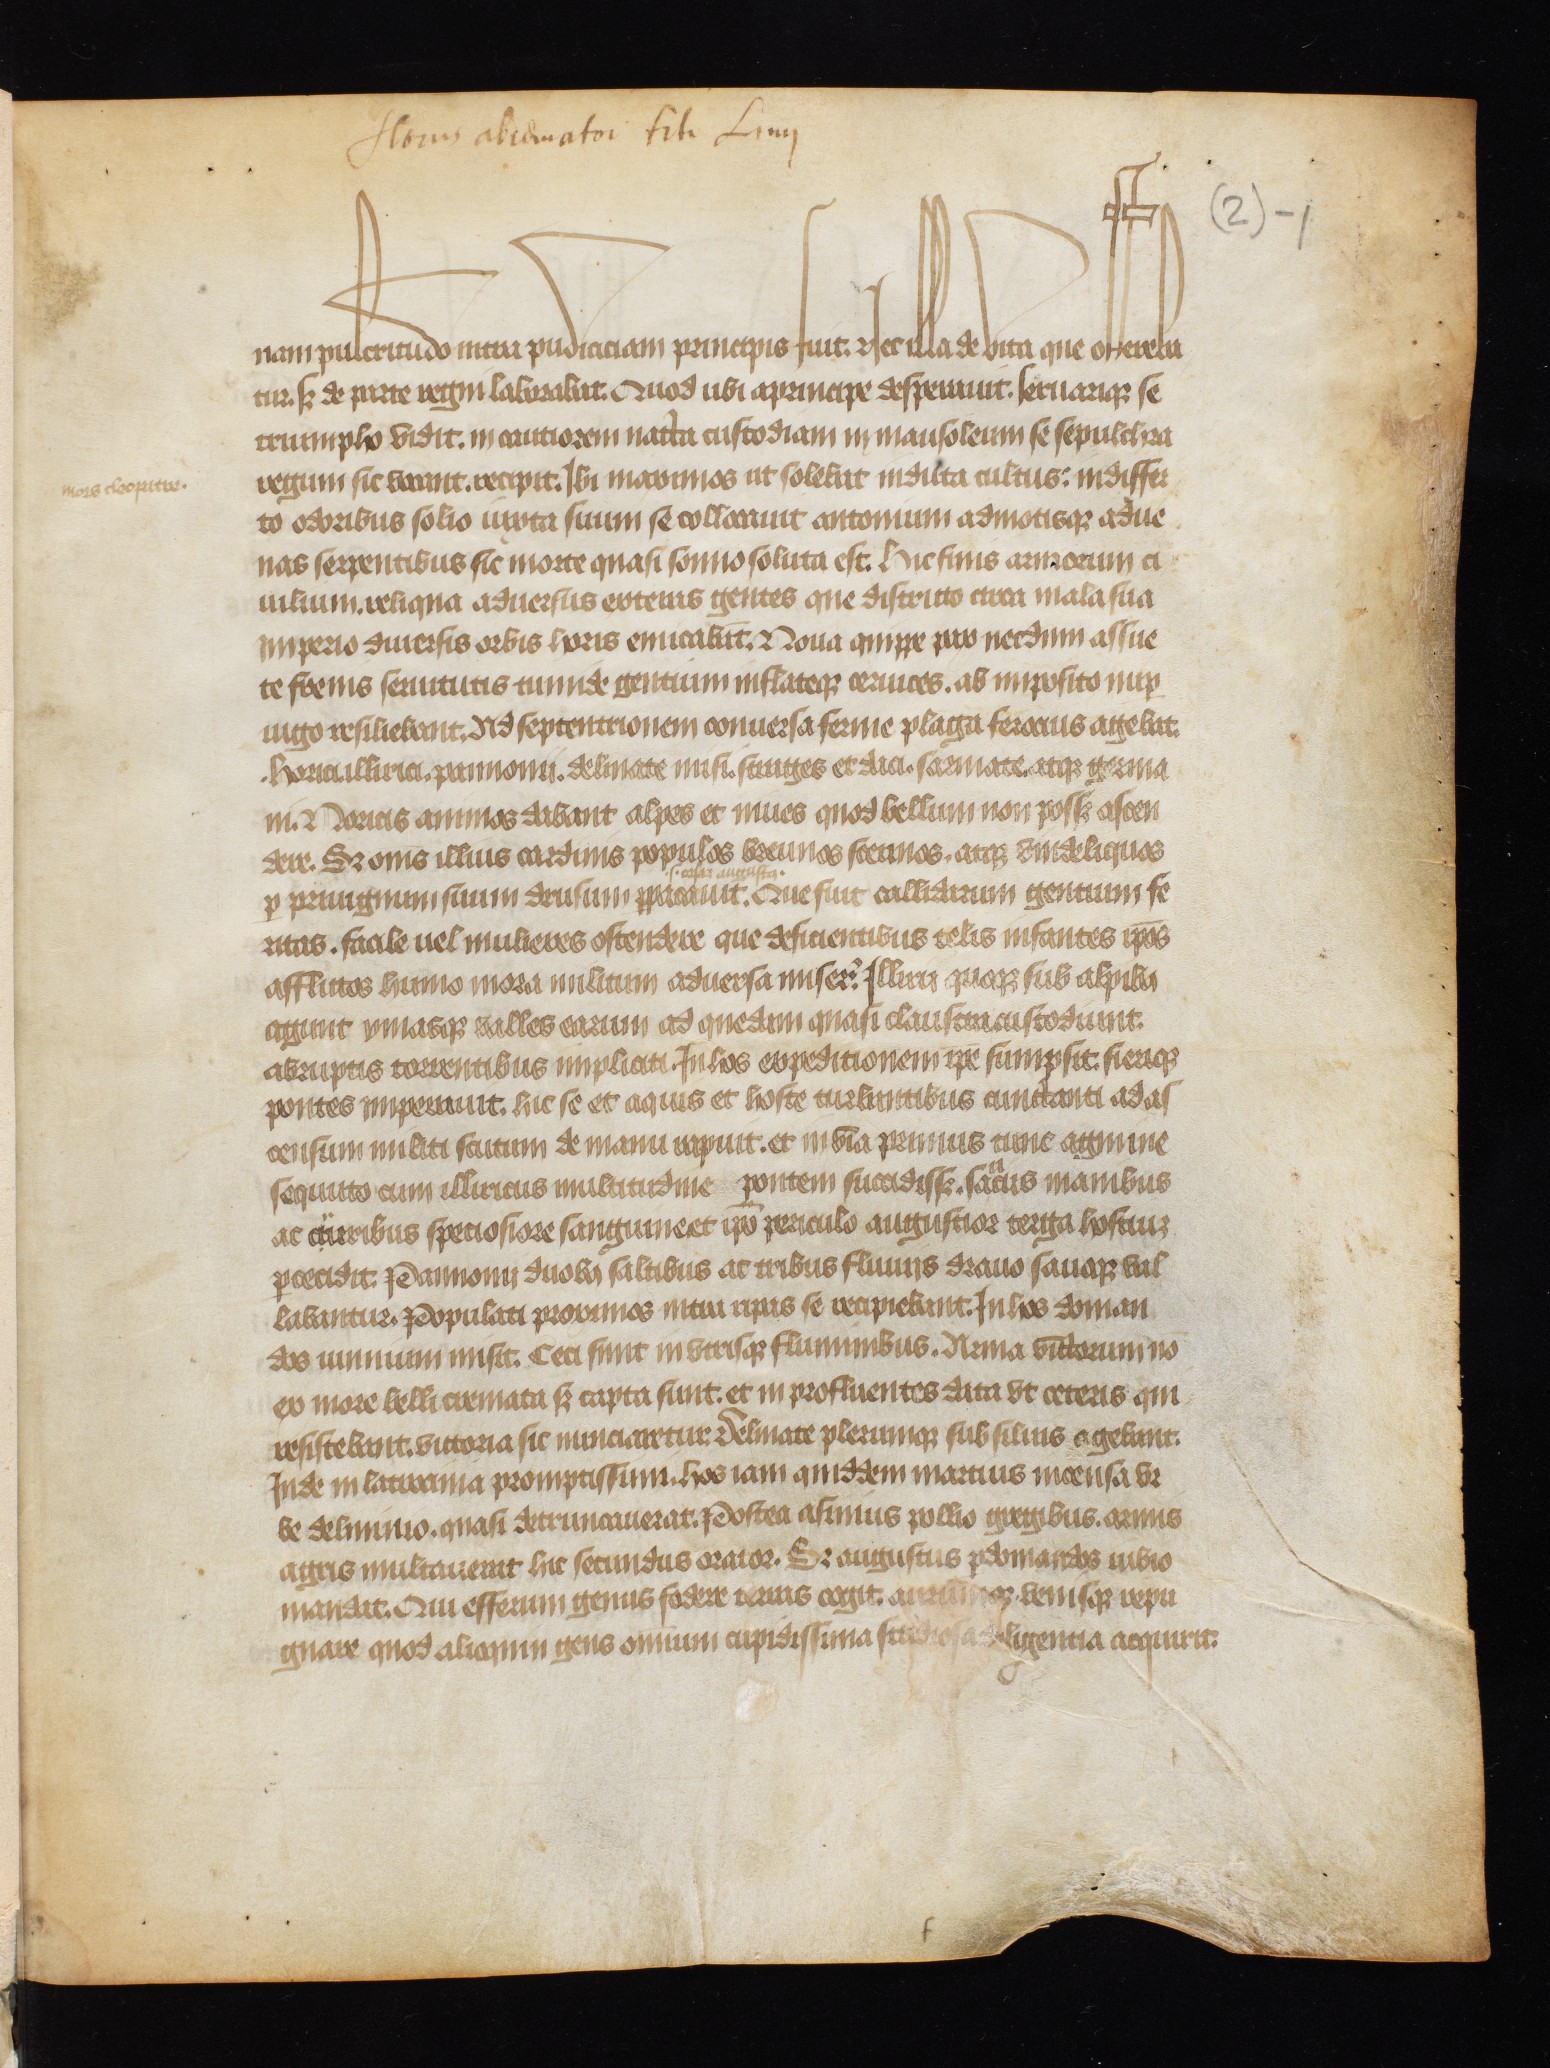 Florus abreuiator titi Liuij
(2)-1
nam pulcritudo intra pudiciciam principis fuit. Nec illa de vita que offereba
tur. sʒ de parte regni laborabat. Quod ubi aprincipe desperauit. seruariqʒ se
triumpho vidit. in cautiorem nacta custodiam in mausoleum se sepulchra
regum sic vocant. recipit. Ibi maximos ut solebat induta cultus: indiffer
mors cleopatre.
to odoribus solio iuxta suum se collocauit antonium admotisqʒ ad ue
nas serpentibus sic morte quasi sonno soluta est. Hic finis armorum ci
uilium. reliqua aduersus exteras gentes que districto circa mala sua
imperio diuersis orbis horis emicabāt. Noua quippe pax necdum assue
te frenis seruitutis tumide gentium inflateqʒ ceruices. ab imposito nup
iugo resiliebant. Ad septentrionem conuersa ferme plaga ferocius agebat.
.Norici illirici. pannonii. delmate misi. traces et daci. sarmate. atqʒ germa
ni. Noricis animos dabant alpes et niues quod bellum non possʒ ascen
dere. Sʒ omīs illius cardinis populos breunos scennos. atqʒ vindeliquos
.s. cesar augustus.
ꝑ priuignum suum drusum ꝑpacauit. Que fuit callidarum gentium fe
ritas. facile uel mulieres ostendere que deficientibus telis infantes ip̄os
afflictos humo in ora militum aduersa miser̄t. Illirij quoqʒ sub alpibꝰ
agunt ymasqʒ valles earum ad quedam quasi claustra custodiunt.
abruptis torrentibus impliciti. In hos expeditionem ip̄e sumpsit. fieriqʒ
pontes imperauit. hic se et aquis et hoste turbantibus cunctanti ad as
censum militi scutum de manu rapuit. et in via primus tunc agmine
sequuto cum illiricus multitudine pontem succidissʒ. saucius manibus
ac cruribus speciosiore sanguine et ip̄o periculo augustior terga hostiuʒ
ꝑcecidit. Pannonij duobꝰ saltibus ac tribus fluuijs drauo sauoqʒ val
labantur. Populati proximos intra ripas se recipiebant. In hos doman
dos iunnium misit. Ceci sunt in vtrisqʒ fluminibus. Arma victorum nō
ex more belli cremata sʒ capta sunt. et in profluentes data vt ceteris qui
resistebant. victoria sic nunciaretur. Delmate plerumqʒ sub siluis agebant.
Inde in latrocinia promptissimi. hos iam quiddem martius incensa vr
be delminio. quasi detruncauerat. Postea asinius pollio gregibus. armis
agris multauerat hic secundus orator. Sʒ augustus ꝑdomandos iubio
mandat. Qui efferum genus fodere terras cogit. aurumqʒ. venisqʒ repu
gnare quod alioquin gens omnium cupidissima studiosa diligentia acquirit.
f